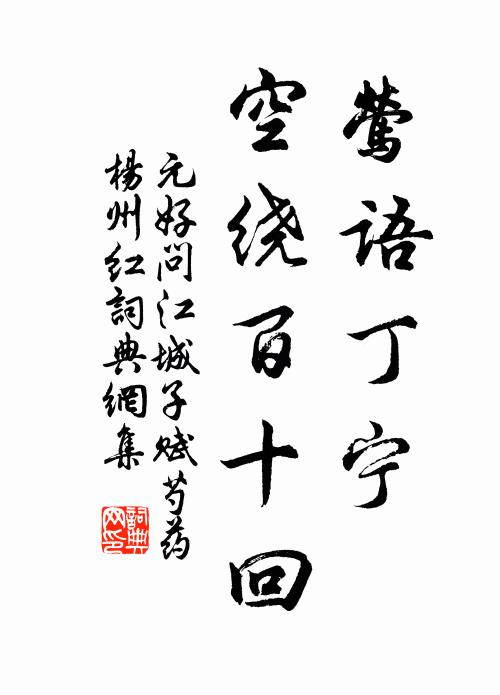 莺语丁宁
空绕百十回
元好问江城子赋芍药
楊州红詞典網集
詞典网印